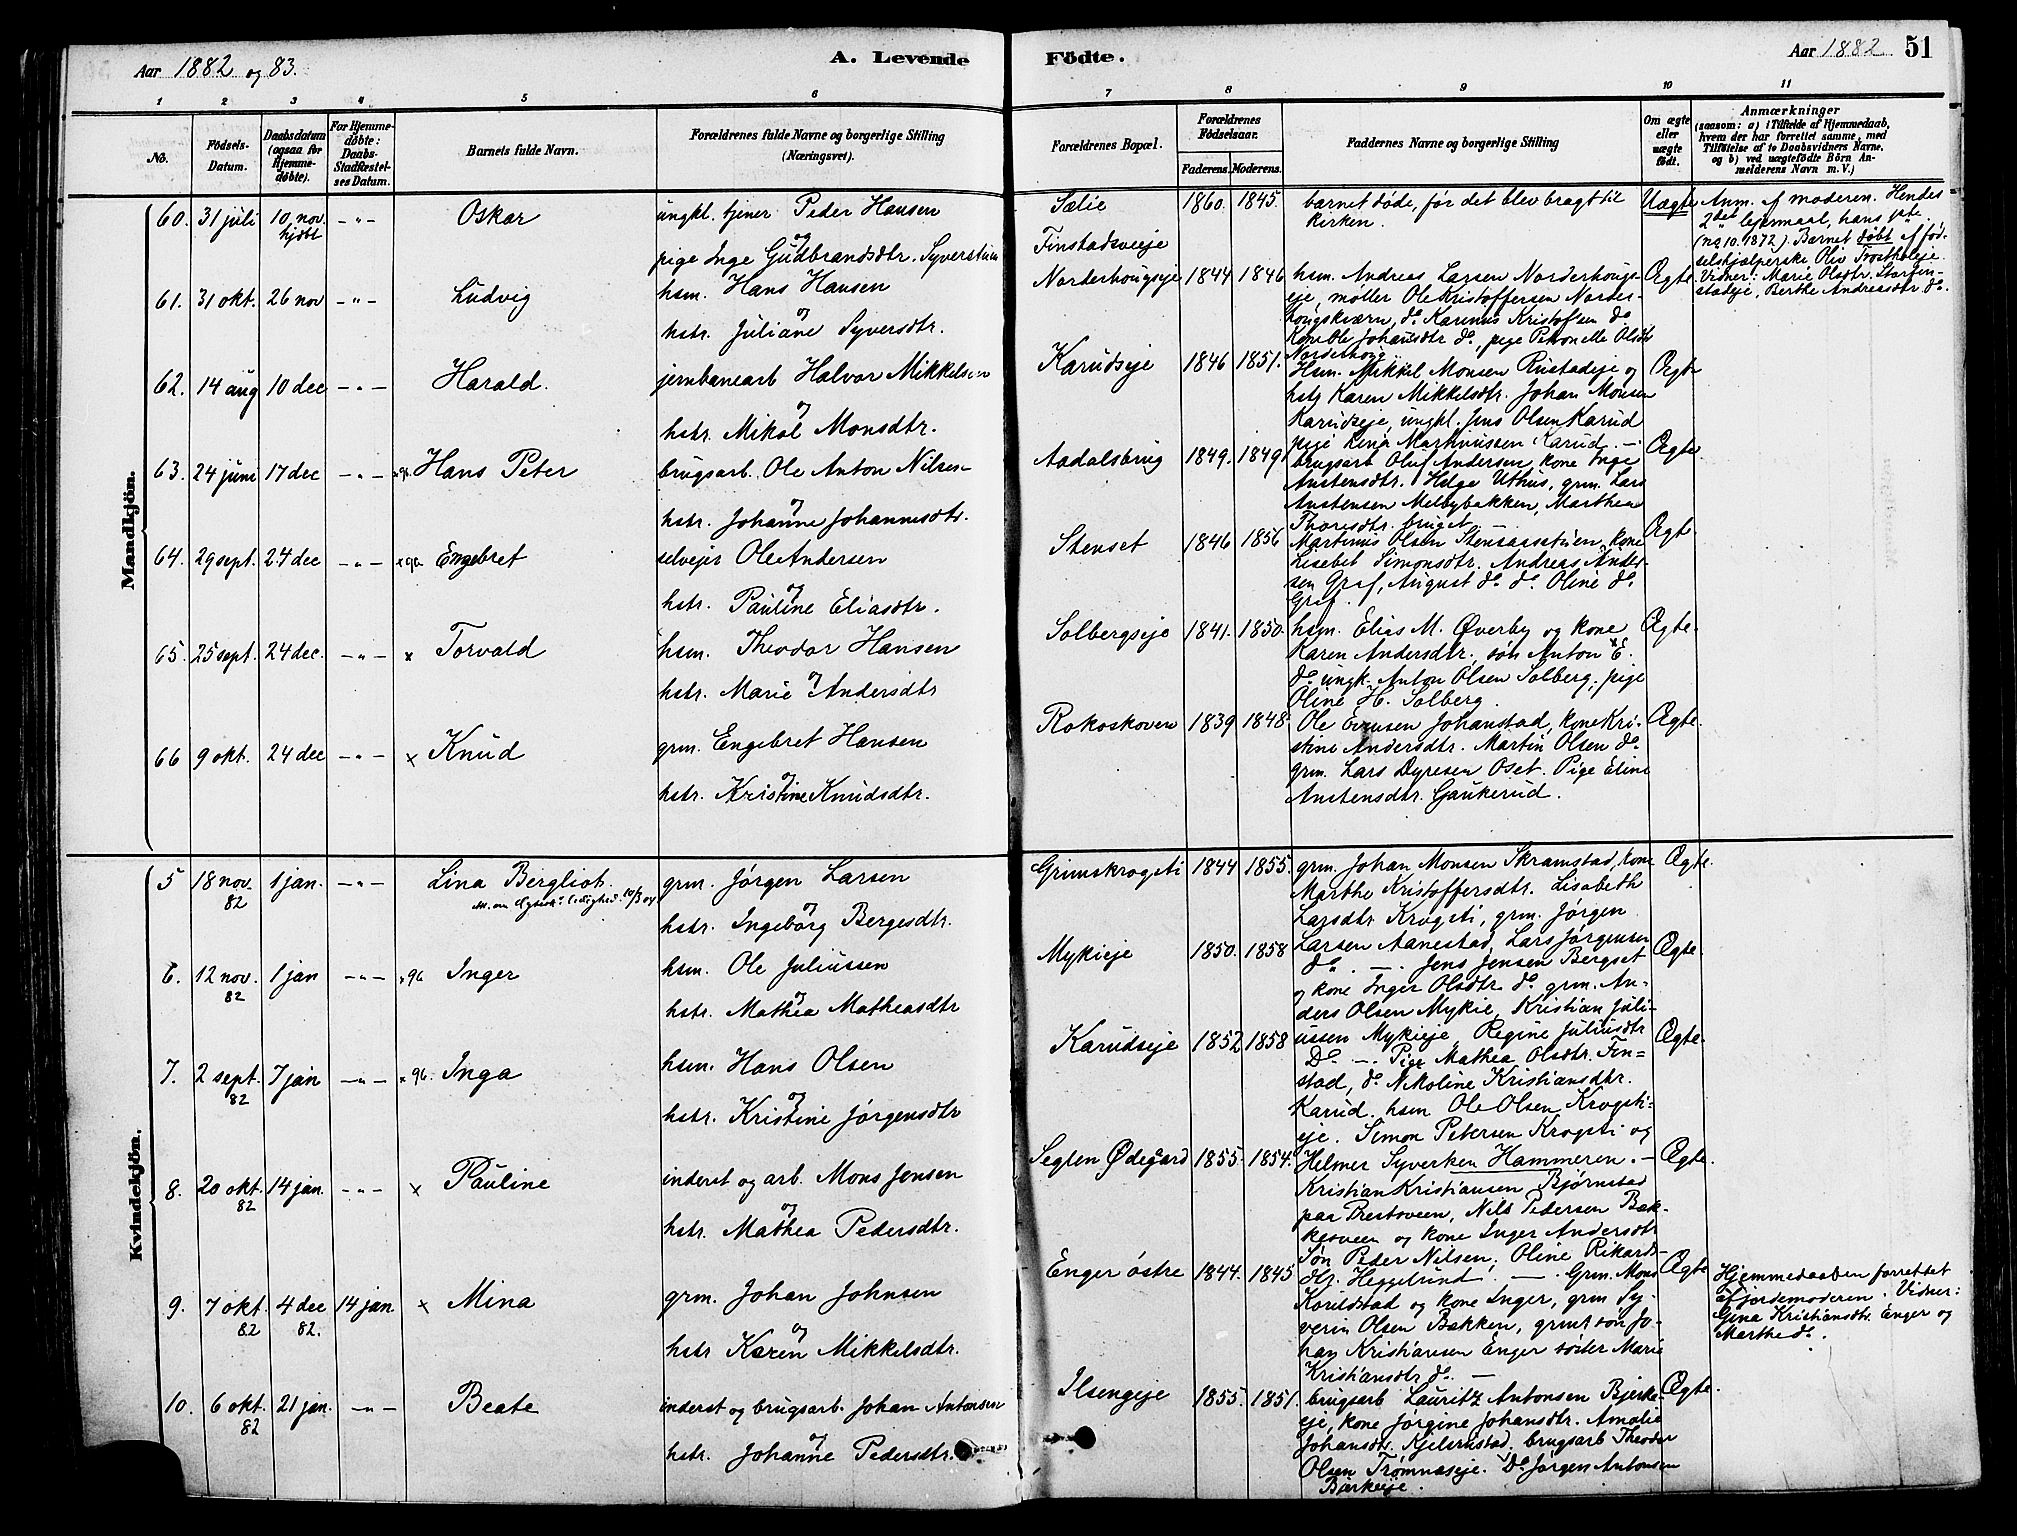 Aar 1882 og 83.
A. Levende
Födte.
Aar 1882
51
1 2 3 4 5 6 7 8 9 10 11
No.
Födsels-Datum.
Daabsdatum (ogsaa for Hjemme-döbte).
For Hjemme-döbte: Daabs-Stadfæstel-ses Datum.
Barnets fulde Navn.
Forældrenes fulde Navne og borgerlige Stilling
(Næringsvei).
Forældrenes Bopæl.
Forældrenes Födselsaar.
Faderens. Moderens.
Faddernes Navne og borgerlige Stilling
Om ægte eller uægte født.
Anmærkninger
(saasom: a) i Tilfælde af Hjemmedaab,
hvem der har forrettet samme, med
Tilføielse af to Daabsvidners Navne.
og b) ved uægtefödte Börn An-
melderens Navn m. V.)
Mandkjön.
60. 31 juli 10 nov. hjdbt -"- Oskar
ungkl. tjener Peder Hansen
og
pige Inge Gudbrandsdtr. Syverstuen
Sælie
Finstadsveje
1860. 1845.
barnet døde, før det blev bragt til
kirken.
Uægte
Anm. af moderen. Hendes
2det lejermaal, hans 1ste.
(no 10. 1872). Barnet døbt af fød-
selshjælperske Oliv
Vidner: Marie Olsdtr.
stadeje, Berthe Andreasdtr do.
61. 31 okt. 26 nov -"- Ludvig
hsm. Hans Hansen
og
hstr. Juliane Syversdtr.
Norderhougseje 1844 1846
hsm. Andreas Larsen Norderhougs-
eje, møller Ole Kristoffersen Norder-
hougskværn, do. Karenus Kristofsen do
Johansdtr do., pige Petronelle Olsdtr
Norderhoug
Ægte
62. 14 aug 10 dec -"- Harald.
jernbanearb Halvor Mikkelsen
og
hstr. Mikal Monsdtr.
Karudseje 1846 1851.
Hsm. Mikkel Monsen Rustadeje og
hstr Karen Mikkelsdtr. Johan Monsen
Karudseje, ungkl. Jens Olsen Karud
pige Lina Martinussen Karud. —
Ægte
63. 24 juni 17 dec -"- x96 Hans Peter
brugsarb. Ole Anton Nilsen
og
hstr. Johanne Johannesdtr.
Aadalsbrug 1849. 1849.
brugsarb Oluf Andersen, kone Inge
Austensdtr. Helge Uthus, grm. Lars
Austensen Melbybakken, Marthea
Thoresdtr. bruget —
Ægte
64. 29 sept. 24 dec -"- x96 Engebret
selvejer Ole Andersen
og
hstr. Pauline Eliasdtr.
Stenset 1846 1856
Martinus Olsen Stensaasstuen, kone
Lisebet Simonsdtr. Andreas Ander-
sen Graf, August do. do. Oline do.
Graf.
Ægte
65. 25 sept. 24 dec. -"- x Torvald
hsm. Theodor Hansen
og
hstr. Marie Andersdtr
Solbergseje 1841. 1850.
hsm. Elias M. Øverby og kone
Karen Andersdtr, søn Anton E.
do. ungk. Anton Olsen Solberg, pige
Oline H. Solberg.
Ægte.
66 9 okt. 24 dec -"- x Knud
grm. Engebret Hansen
og
hstr. Kristine Knudsdtr.
Rokoskoven 1839 1848.
Ole Evensen Johanstad, kone Kri-
stine Andersdtr. Martin Olsen do.
grm. Lars Dyresen Oset. Pige Eline
Austensdtr. Gaukerud.
Ægte.
Kvindekjön.
5 18 nov. 82 1 jan. -"- Lina Bergliot.
grm. Jörgen Larsen
og
hstr. Ingeborg Bergesdtr.
Grimskrogsti 1844 1855.
grm. Johan Monsen Skramstad, kone
Marthe Kristoffersdtr. Lisabeth
Larsdtr Krogsti, grm. Jørgen
Larsen Aanestad, Lars Jørgensen
do. —
Ægte.
6. 12 nov. 82 1 jan -"- x96 Inger
hsm. Ole Juliussen
og
hstr. Mathea Matheasdtr
Mykieje 1850. 1858
Jens Jensen Bergset
og kone Inger Olsdtr. do. grm. An-
ders Olsen Mykie, Kristian Juli-
ussen Mykieje, Regine Juliusdtr
Do. —
Ægte.
7. 2 sept. 82 7 jan -"- x96. Inga
hsm. Hans Olsen
og
hstr. Kristine Jørgensdtr
Karudseje 1852 1858
Pige Mathea Olsdtr. Fin-
stad, do Nikoline Kristiansdtr.
Karud. hsm Ole Olsen Krogsti-
eje. Simon Petersen Krogsti og
Helmer Syversen Hammeren. —
Ægte.
8. 20 okt. 82 14 jan. -"- x Pauline
inderst og arb. Mons Jensen
og
hstr. Mathea Pedersdtr.
Seglen Ødegård 1855. 1854.
Kristian Kristiansen Bjørnstad
paa Prestoveen, Nils Pedersen Bak-
kesveen og kone Inger Andersdtr
Søn Peder Nilsen, Oline Rikards-
dtr. Heggelund. —
Ægte.
9. 7 okt. 82 4 dec 82. 14 jan x Mina
grm. Johan Johnsen
og
hstr Karen Mikkelsdtr.
Enger østre 1844. 1845
Grm. Mons
Korildstad og kone Inger, grm Sy-
verin Olsen Bakken, grmt søn Jo-
han Kristiansen Enger søster Marie
Kristiansdtr do. —
Ægte
Hjemmedaaben forrettet
af jordemoderen. Vidner:
Gina Kristiansdtr. Enger og
Marthe do.
10. 6 okt. 82 21 jan. -"- Beate
inderst og brugsarb. Johan Antonsen
og
hstr. Johanne Pedersdtr.
Ilsengeje 1855. 1851.
brugsarb Lauritz Antonsen Bjerke-
eje, kone Jørgine Johansdtr. Amalie
Johansdtr. Kjelerustad, brugsarb Theodor
Olsen Trømnæseje. Do Jørgen Antonsen
Bjerkeeje.
Ægte.